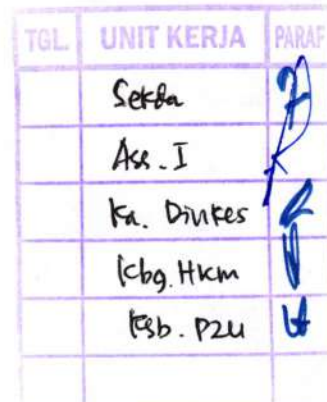 TGL. UNIT KERJA PARAF
Sekda
Ass. I
Ka. Dinkes
Kbg. Hkm
Ksb. P2U